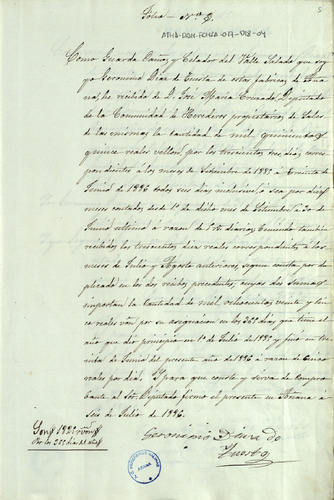 5
Folio - Nº 8.
ATHA-DAH-FCHSA-017-018-04
Como Guarda Caños y Celador del Valle Salado que soy
yo Geronimo Diaz de Cuesta de estas fabricas de Sana
he recibido de D. José María Diputado
de la Comunidad de Herederos propietarios de Sales
de las mismas la cantidad de mil quinientos
quince reales vellon, por los trescientos tres dias, corres
pondientes á los meses de Setiembre de 1885 á treinta de
Junio de 1886 todos sus dias inclusive, ó sea por diez
meses contados desde 1º de dicho mes de Setiembre á 30 de
Junio ultimo á razon de 5 rs. diarios. Teniendo tambien
recibidos los trescientos diez reales correspondientes á los
meses de Julio y Agosto anteriores, segun consta por du
plicado en los dos recibos precedentes, cuyas dos sumas
importan la cantidad de mil ochocientos veinte y cin
co reales von por su asignacion en los 365 dias que tiene el
año que dio principio en 1º de Julio de 1885 y finó en trein
ta de Junio del presente año de 1886 á razon de cinco
reales por dia. Y para que conste y sirva de compro
bante al Sr. Diputado firmo el presente en Añana á
seis de Julio de 1886.
Son 1825 rs von
Por los 365 dias del año
Geronimo Diaz de
Cuesta